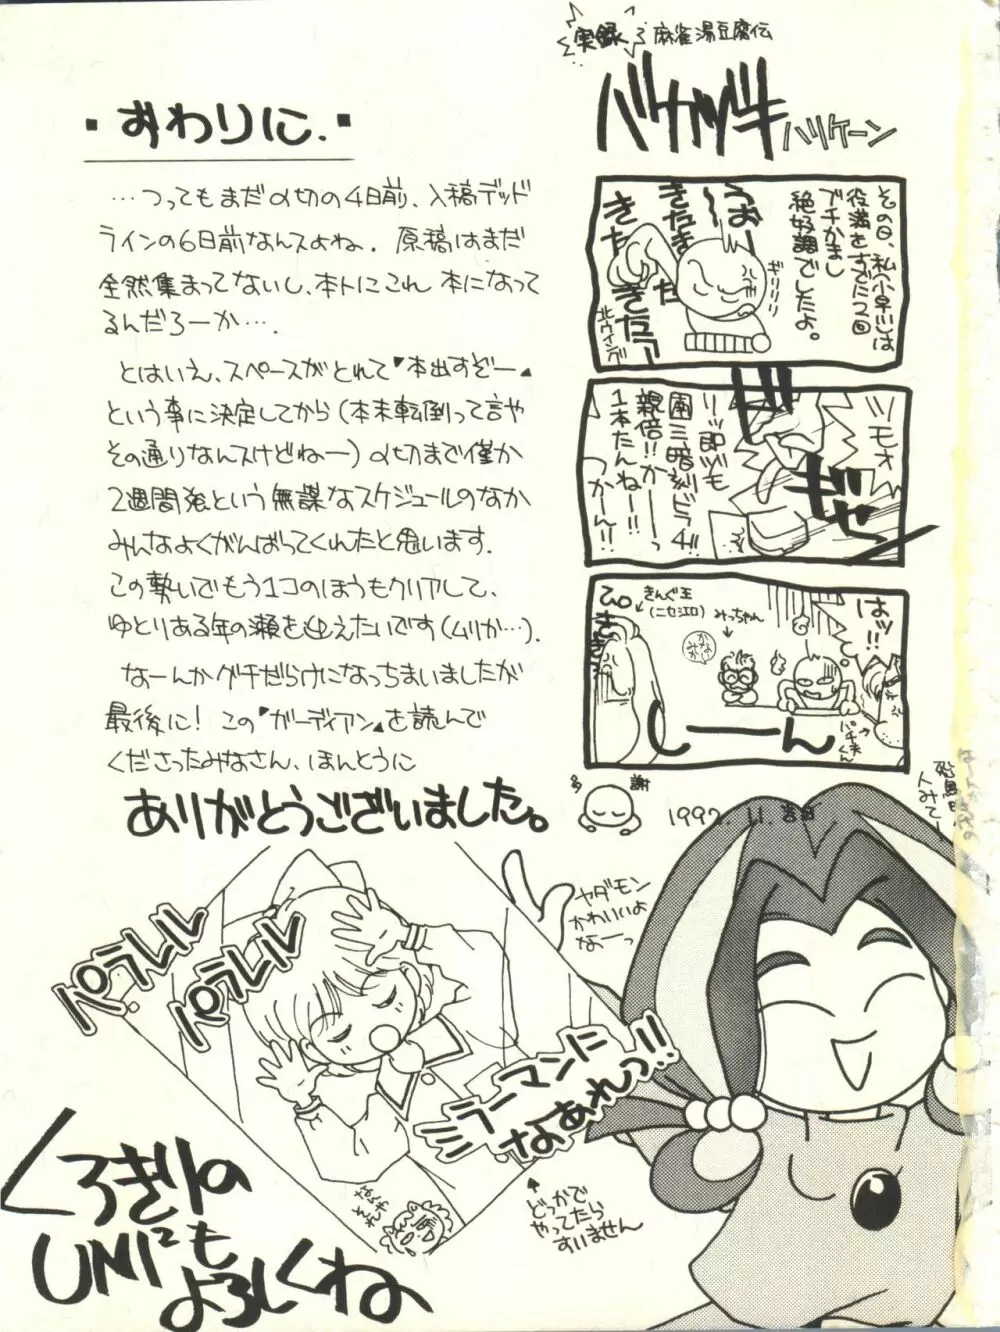 ・おわりに.・
…つってもまだ〆切の4日前、入稿デッド
ラインの6日前なんスよね. 原稿はまだ
全然集まってないし、本トにこれ 本になって
るんだろーか….
とはいえ、スペースがとれて「本出すぞー」
という事に決定してから(本末転倒って言や
その通りなんスけどねー)〆切まで僅か
2週間発という無謀なスケジュールのなか
みんなよくがんばってくれたと思います.
この勢いでもう1コのほうもクリアして、
ゆとりある年の瀬を迎えたいです(ムリか…).
なーんかグチだらけになっちまいましたが
最後に! この「ガーディアン」を読んで
くださったみなさん、ほんとうに
ありがとうございました。
実録 麻雀湯豆腐伝
バカヅキ
ハリケーン
その日、私小早川は
役満をすでに2回
ブチかまし
絶好調でしたよ。
うおーーー
きたきた
きた
きたァー
ギリリリリ
北ウイング
ツモォ
ギャッ
リーッ即ヅモ
南三暗刻ドラ4!!
親倍!!かーーーっ
1本たんねー!!
つかーん!!
はッ!!
きんぐ王
(ニセシエロ)
みっちゃん
しーーーん
パチ夫くん
多
謝
1992.11.吉日
ヤダモン
かわいいよ
なーっ
パラレル
パラレル
ラーマンに
なあれっ!!
↑
どっかで
やってたら
すいません
くろきりの
UNI²も
よろしくね